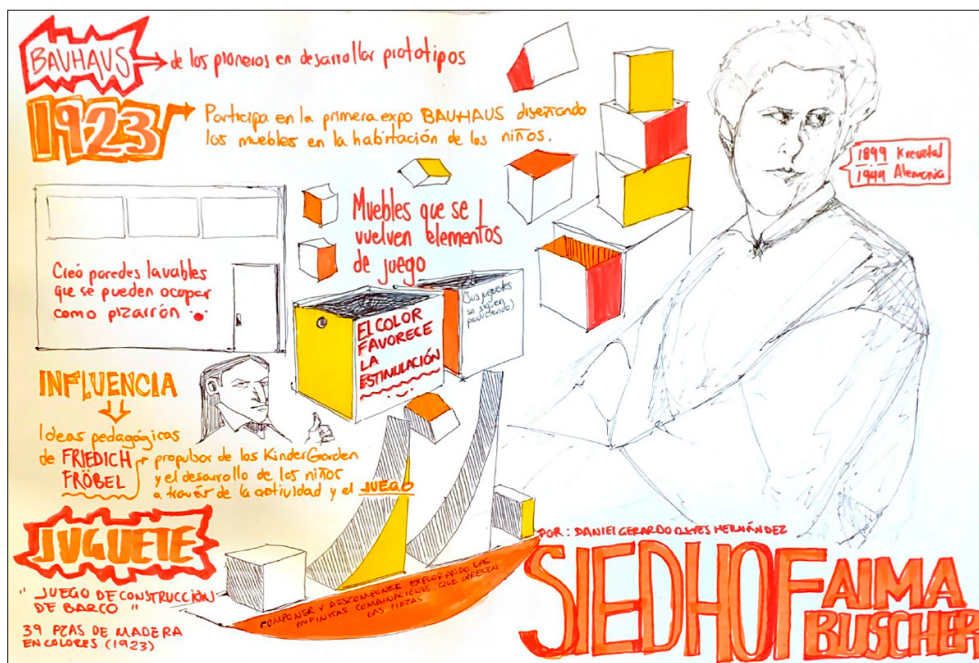 BAUHAUS
de los pioneros en desarrollar prototipos
1923
Participa en la primera expo BAUHAUS diseñando
los muebles en la habitación de los niños.
1899 Kreuztal
1944 Alemania
Muebles que se
vuelven elementos
de juego
Creó paredes lavables
que se pueden ocupar
como pizarrón
EL COLOR
FAVORECE
LA
ESTIMULACIÓN
(Sus juguetes
se siguen
produciendo)
INFLUENCIA
Ideas pedagógicas
de FRIEDICH
FRÖBEL
propulsor de los KinderGarden
y el desarrollo de los niños
a través de la actividad y el JUEGO
JUGUETE
" JUEGO DE CONSTRUCCIÓN
DE BARCO "
39 PZAS DE MADERA
EN COLORES (1923)
COMPONER Y DESCOMPONER EXPLORADO LAS
INFINITAS COMBINACIONES QUE OFRECEN
LAS PIEZAS
POR: DANIEL GERARDO HERNÁNDEZ
SIEDHOF
AlMA
BUSCHER